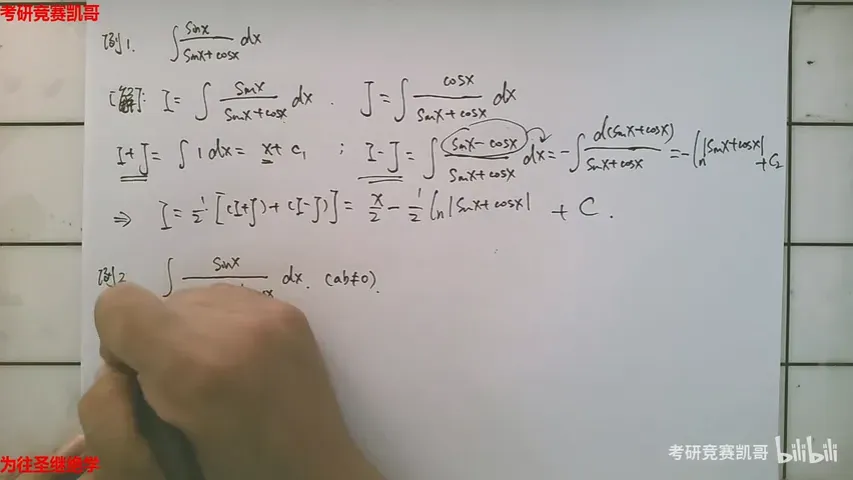 考研竞赛凯哥
例1. ∫ sinx / (sinx+cosx) dx
[解]: I = ∫ sinx / (sinx+cosx) dx . J = ∫ cosx / (sinx+cosx) dx
I+J = ∫ 1 dx = x + C₁ ; I-J = ∫ (sinx-cosx) / (sinx+cosx) dx = -∫ d(sinx+cosx) / (sinx+cosx) = -ln|sinx+cosx| + C₂
⇒ I = 1/2 · [(I+J)+(I-J)] = x/2 - 1/2 ln|sinx+cosx| + C.
例2 ∫ sinx / dx. (ab≠0).
考研竞赛凯哥 bilibili
为往圣继绝学